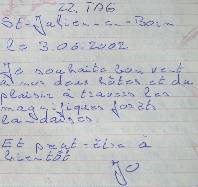 22. TAG
St-Julien-en-Born
le 3.06.2002
Je souhaite bon vent
à nos deux hôtes et du
plaisir à travers les
magnifiques forêts
landaises.
Et peut-être à
bientôt
Jo